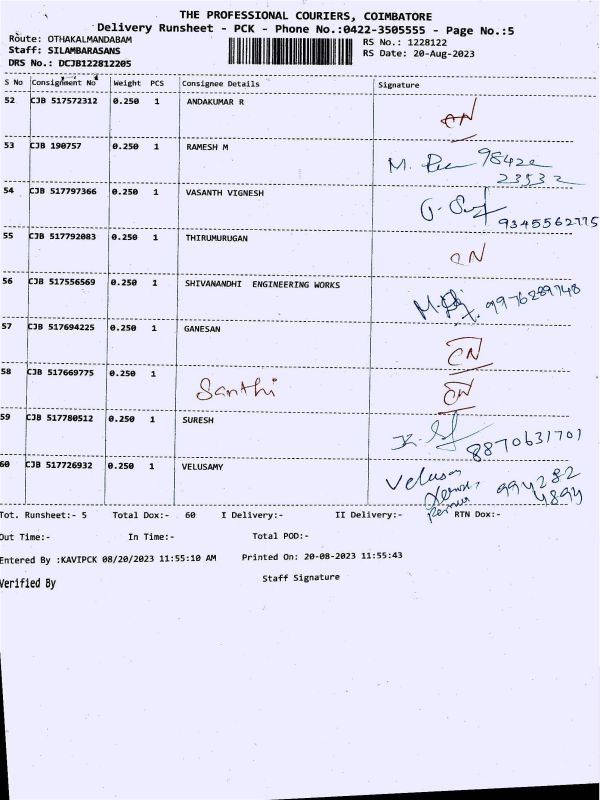 THE PROFESSIONAL COURIERS, COIMBATORE
Delivery Runsheet - PCK - Phone No.:0422-3505555 - Page No.:5
Route: OTHAKALMANDABAM
RS No.: 1228122
Staff: SILAMBARASANS
RS Date: 20-Aug-2023
DRS No.: DCJB122812205
S No Consignment No Weight PCS Consignee Details Signature
52 CJB 517572312 0.250 1 ANDAKUMAR R
53 CJB 190757 0.250 1 RAMESH M
M. 98422
23532
54 CJB 517797366 0.250 1 VASANTH VIGNESH
9345562775
55 CJB 517792083 0.250 1 THIRUMURUGAN
56 CJB 517556569 0.250 1 SHIVANANDHI ENGINEERING WORKS
9976289748
57 CJB 517694225 0.250 1 GANESAN
58 CJB 517669775 0.250 1 Santhi
59 CJB 517780512 0.250 1 SURESH
8870631701
60 CJB 517726932 0.250 1 VELUSAMY
994282
4894
Tot. Runsheet:- 5 Total Dox:- 60 I Delivery:- II Delivery:- RTN Dox:-
Out Time:- In Time:- Total POD:-
Entered By :KAVIPCK 08/20/2023 11:55:10 AM Printed On: 20-08-2023 11:55:43
Verified By Staff Signature